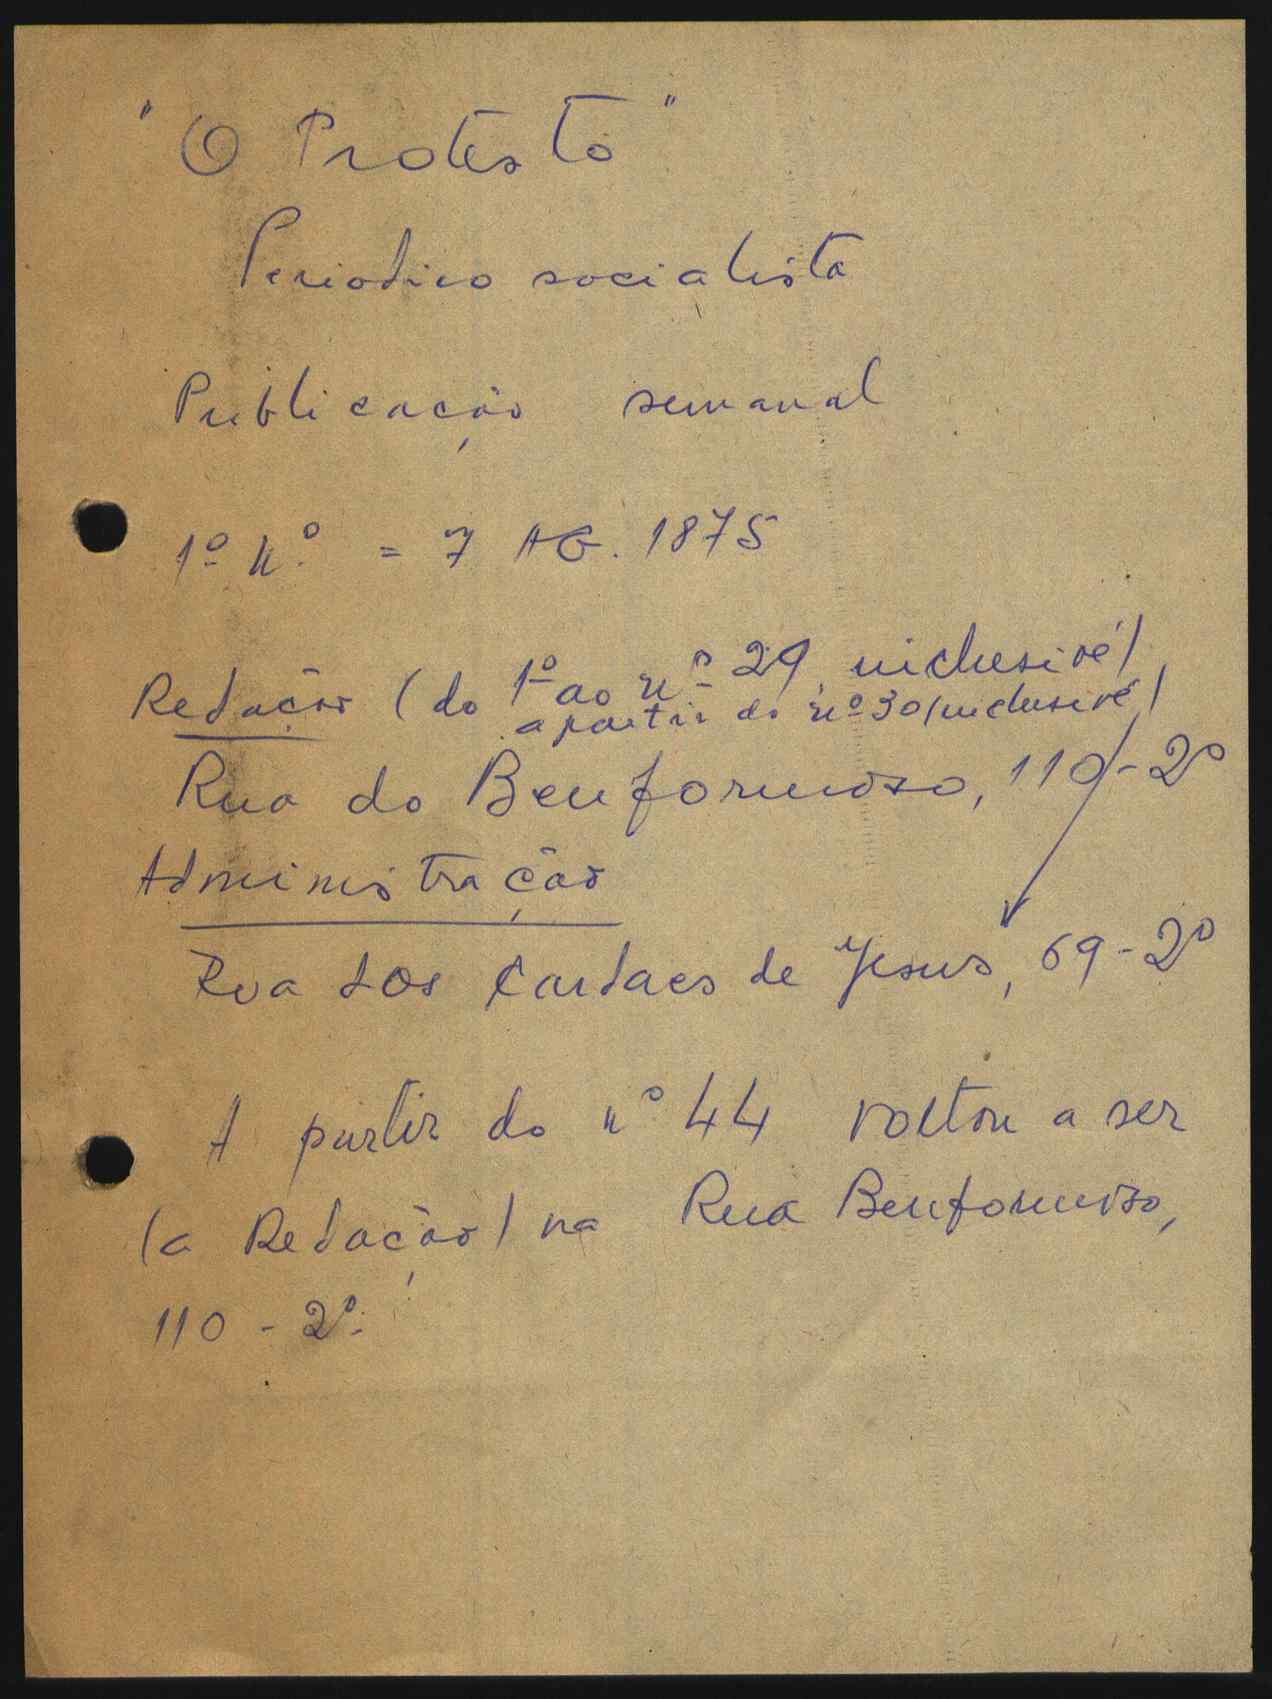 "O Protesto"
Periodico socialista
Publicação semanal
1º Nº = 7 AG. 1875
Redação (do 1º ao nº 29, inclusivé)
a partir do nº 30 (inclusivé)
Rua do Benformoso, 110-2º
Administração
Rua dos Cardaes de Jesus, 69-2º
A partir do nº 44 voltou a ser
(a Redação) na Rua Benformoso,
110-2º.